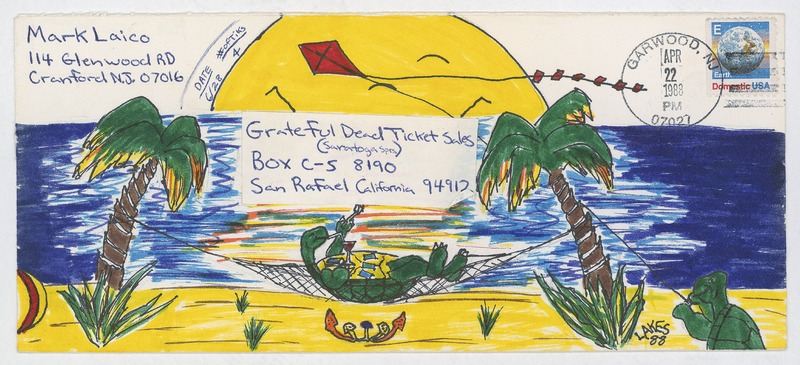 Mark Laico
114 Glenwood RD
Cranford N.J. 07016
DATE #OFTIKS
6/28 4
GARWOOD, NJ
APR
22
1988
PM
07027
E
Earth
Domestic USA
Grateful Dead Ticket Sales
(Saratoga Spa)
Box C-S 8190
San Rafael California 94912
LAKES
'88